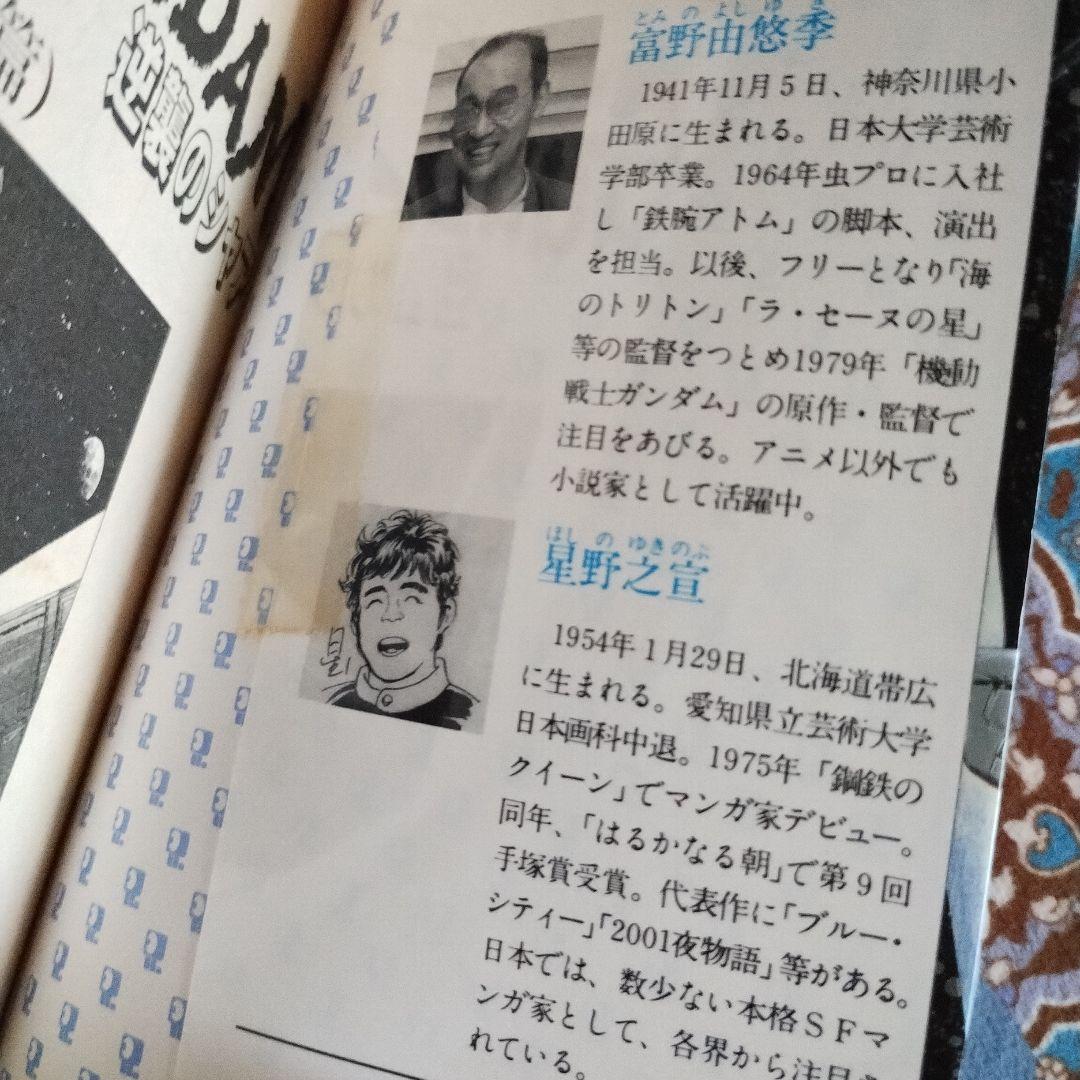 篇)
DAM
逆襲のシャ
とみ の よし ゆ き
富野由悠季
1941年11月5日、神奈川県小
田原に生まれる。日本大学芸術
学部卒業。1964年虫プロに入社
し「鉄腕アトム」の脚本、演出
を担当。以後、フリーとなり「海
のトリトン」「ラ・セーヌの星」
等の監督をつとめ1979年「機動
戦士ガンダム」の原作・監督で
注目をあびる。アニメ以外でも
小説家として活躍中。
ほし の ゆきのぶ
星野之宣
1954年1月29日、北海道帯広
に生まれる。愛知県立芸術大学
日本画科中退。1975年「鋼鉄の
クイーン」でマンガ家デビュー。
同年、「はるかなる朝」で第9回
手塚賞受賞。代表作に「ブルー・
シティー」「2001夜物語」等がある。
日本では、数少ない本格SFマ
ンガ家として、各界から注目
れている。